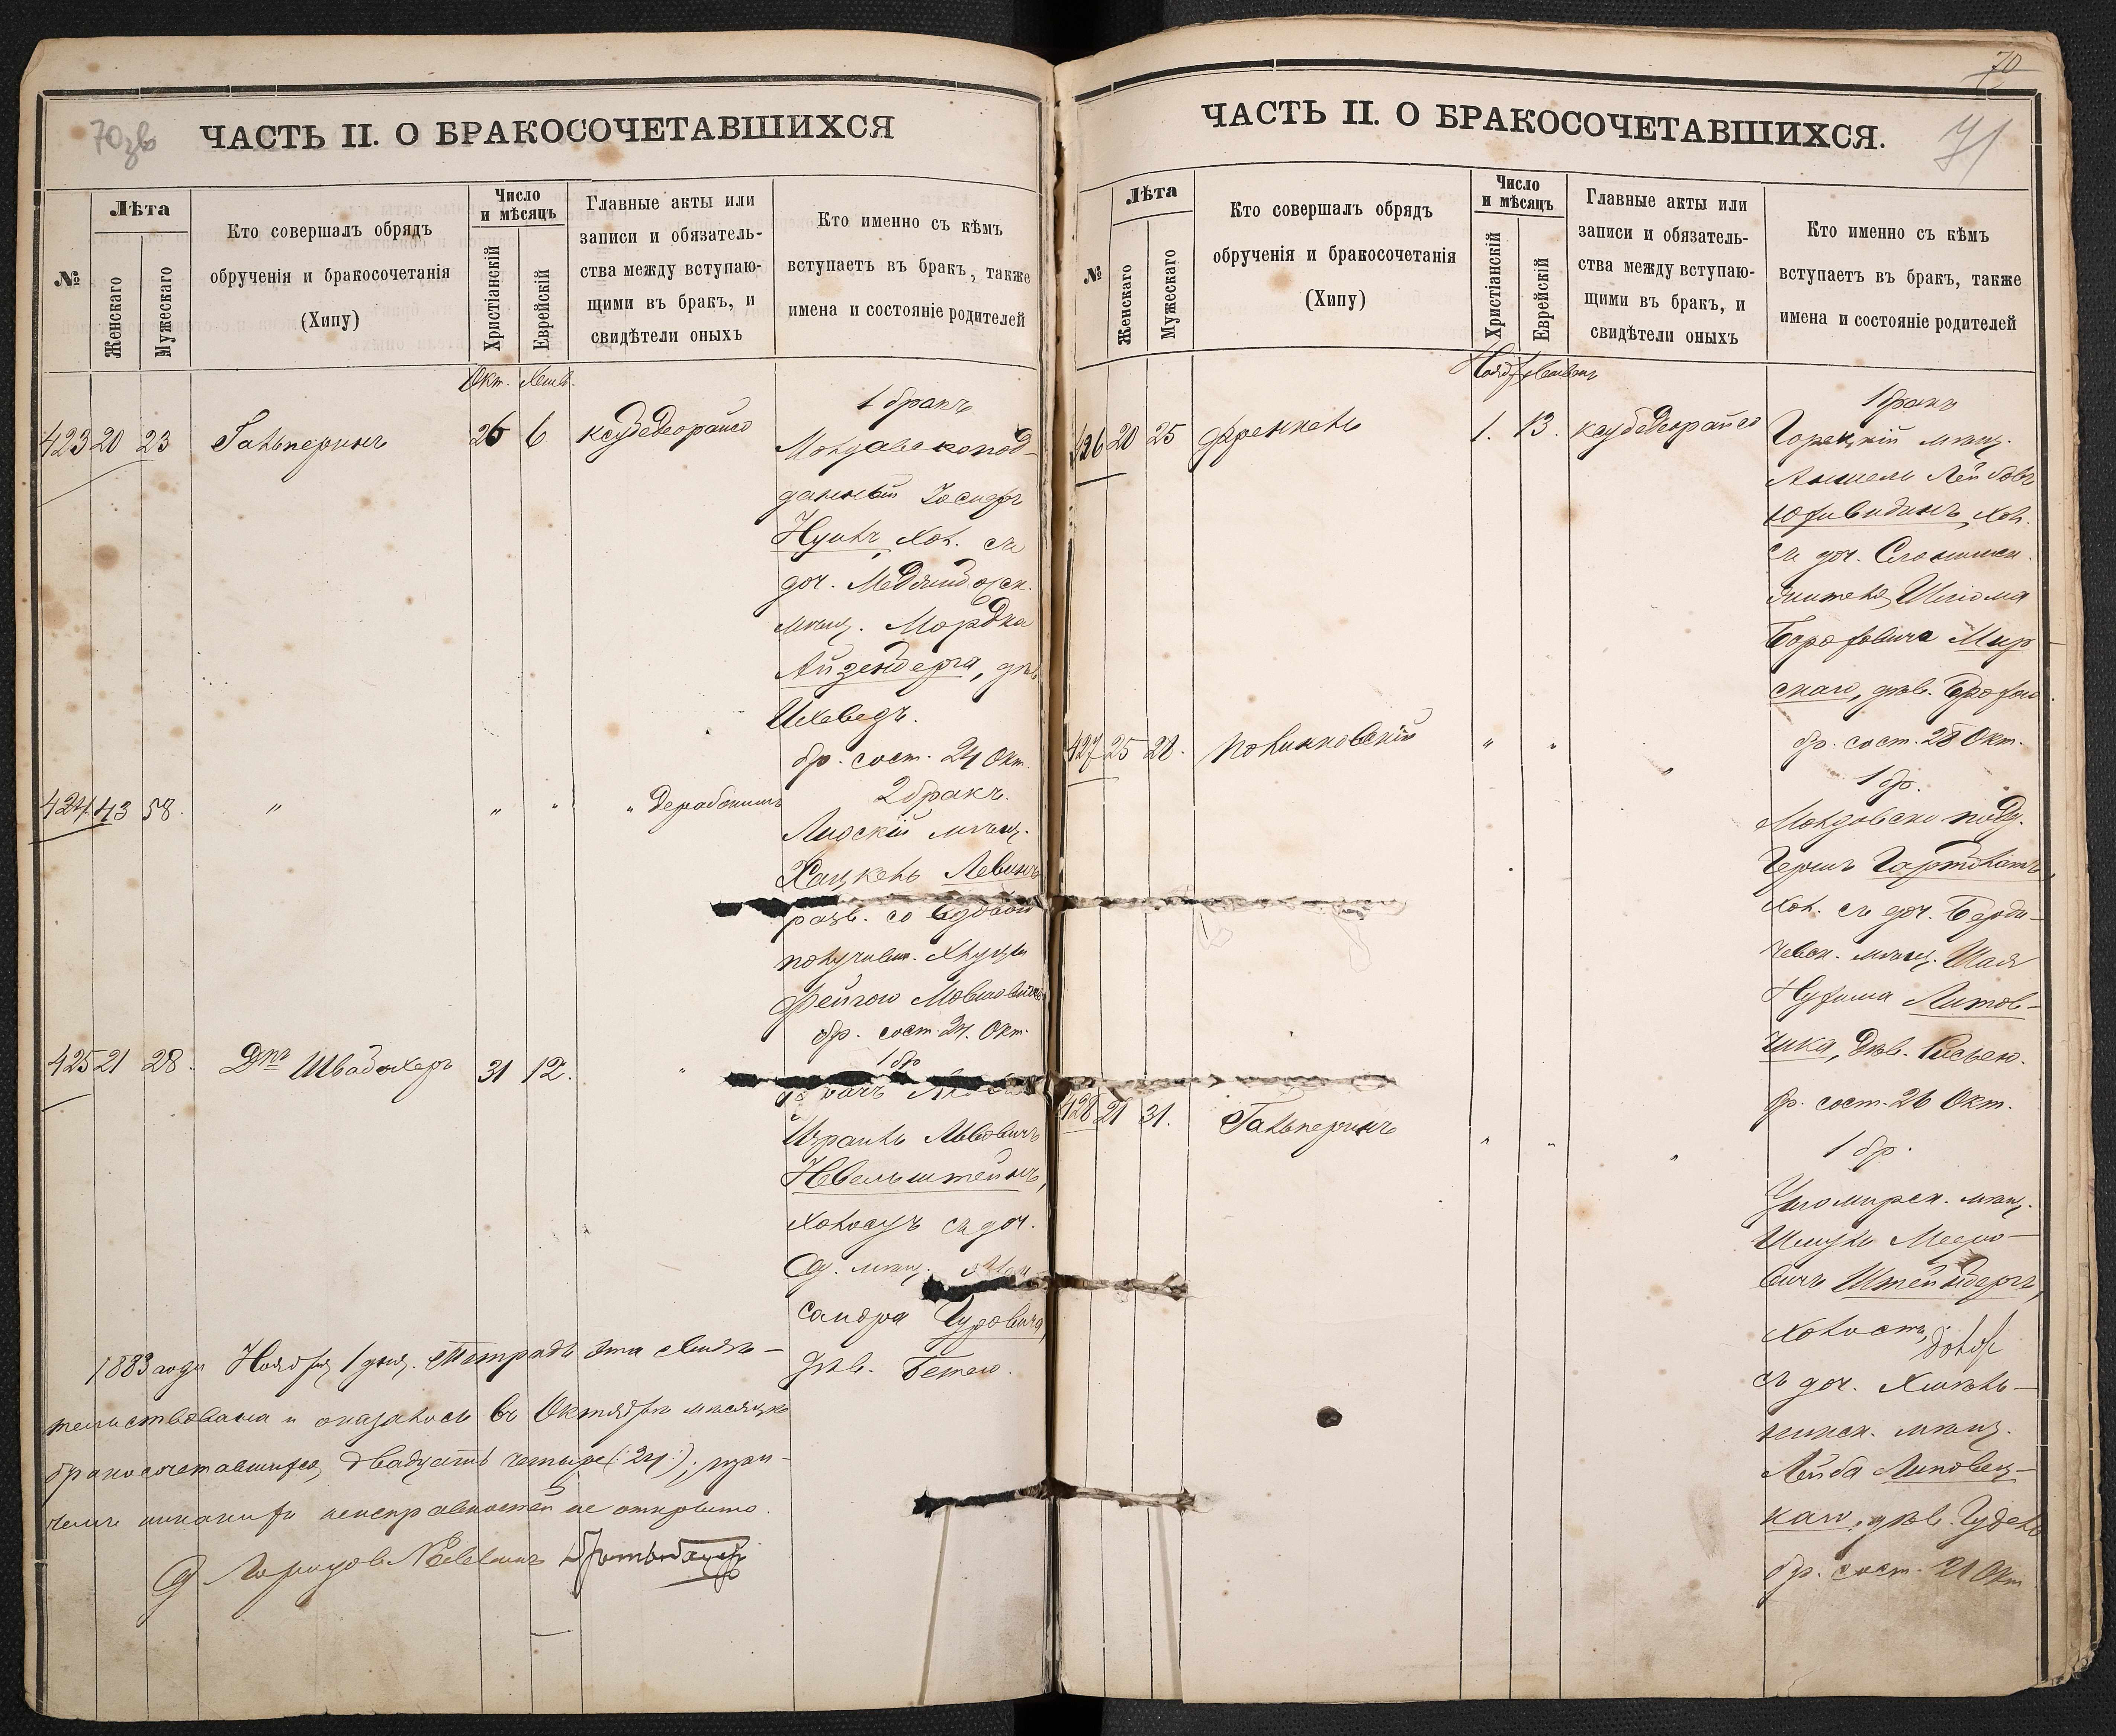 70зв
ЧАСТЬ II. О БРАКОСОЧЕТАВШИХСЯ
№
Лѣта
Женскаго
Мужескаго
Кто совершалъ обрядъ
обрученія и бракосочетанія
(Хипу)
Число
и мѣсяцъ
Христіанскій
Еврейскій
Главные акты или
записи и обязатель-
ства между вступаю-
щими въ бракъ, и
свидѣтели оныхъ
Кто именно съ кѣмъ
вступаетъ въ бракъ, также
имена и состояніе родителей
Окт. Хешв.
423 20 23 Гальперинъ 26 6
1 бракъ
Молдавскопод-
данный Іосифъ
Нуинъ, хол. съ
доч. Меджибожск.
мѣщ. Мордка
Айзенберга, дѣв.
Ихеведъ.
бр. сост. 24 Окт.
424 43 58. " " " "
2 бракъ.
Лидскій мѣщ.
Хацкель Левинъ
разв. со вдовой
получивш. Хлуцы
Фейгою Мовшовичъ
бр. сост. 24. Окт.
425 21 28. Дръ Швабахеръ 31 12. "
1 бр
Израиль Львовичъ
Невельштейнъ,
холосъ съ доч.
Од. мѣщ.
сандра Гуровича,
дѣв. Бетею.
1883 года Ноября 1 дня. Тетрадь эта свидѣ-
тельствована и оказалось въ Октябрѣ мѣсяцѣ
бракосочетавшихся двадцать четыре (:24:); при-
чемъ никакихъ неисправностей не открыто.
70
71
ЧАСТЬ II. О БРАКОСОЧЕТАВШИХСЯ.
№
Лѣта
Женскаго
Мужескаго
Кто совершалъ обрядъ
обрученія и бракосочетанія
(Хипу)
Число
и мѣсяцъ
Христіанскій
Еврейскій
Главные акты или
записи и обязатель-
ства между вступаю-
щими въ бракъ, и
свидѣтели оныхъ
Кто именно съ кѣмъ
вступаетъ въ бракъ, также
имена и состояніе родителей
Нояб. Хешвонъ
426 20 25 Френкель 1. 13.
1 бракъ
Горецкій мѣщ.
Аншель Лейбовъ
Юхивидинъ, хол.
съ доч. Слонимск.
жителя Шлома
Бороховича Мир-
скаго, дѣв. Брохою.
бр. сост. 28 Окт.
427 25 28. Полинковскій " " "
1 бр.
Молдовско подд.
Гершъ Гартъ
хол. съ доч. Берди-
чевск. мѣщ. Шая
Нухима Литов-
чика, дѣв. Рисею.
бр. сост. 26 Окт.
428 21 31. Гальперинъ " " "
1 бр.
Житомирск. мѣщ.
Шмуль Мееро-
вичъ Штейнбергъ,
холостъ,
съ доч. Хмѣль-
никск. мѣщ.
Лейба Липовец-
каго, дѣв. Гудель
бр. сост. 21 Окт